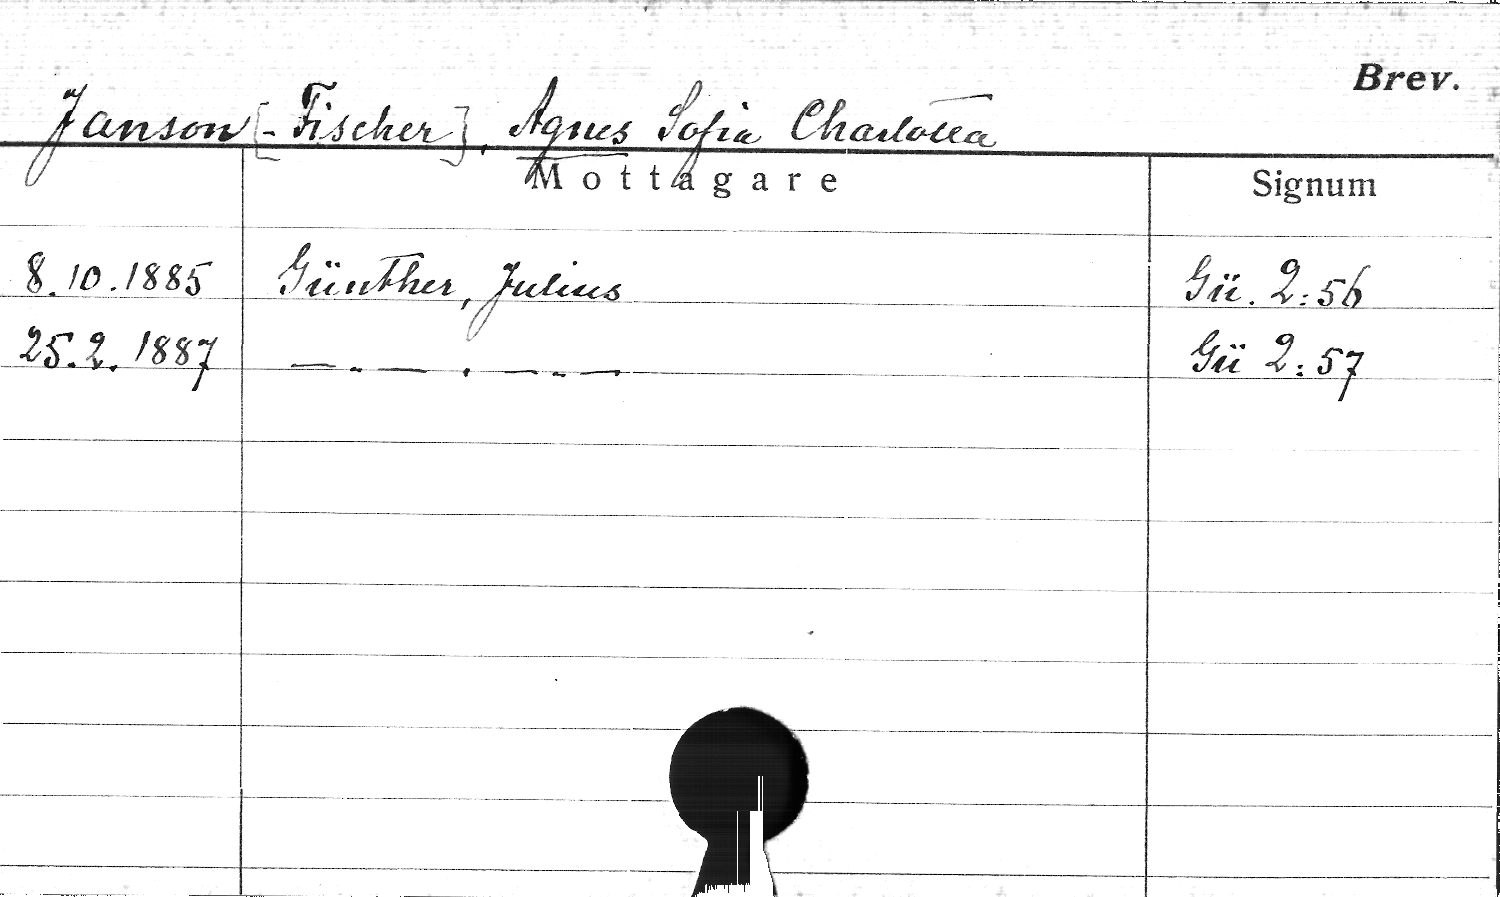 Brev.
Janson [-Fischer], Agnes Sofia Charlotta
Mottagare Signum
8.10.1885 Günther, Julius Gü. 2:56
25.2.1887 — . — , — . — . Gü 2:57